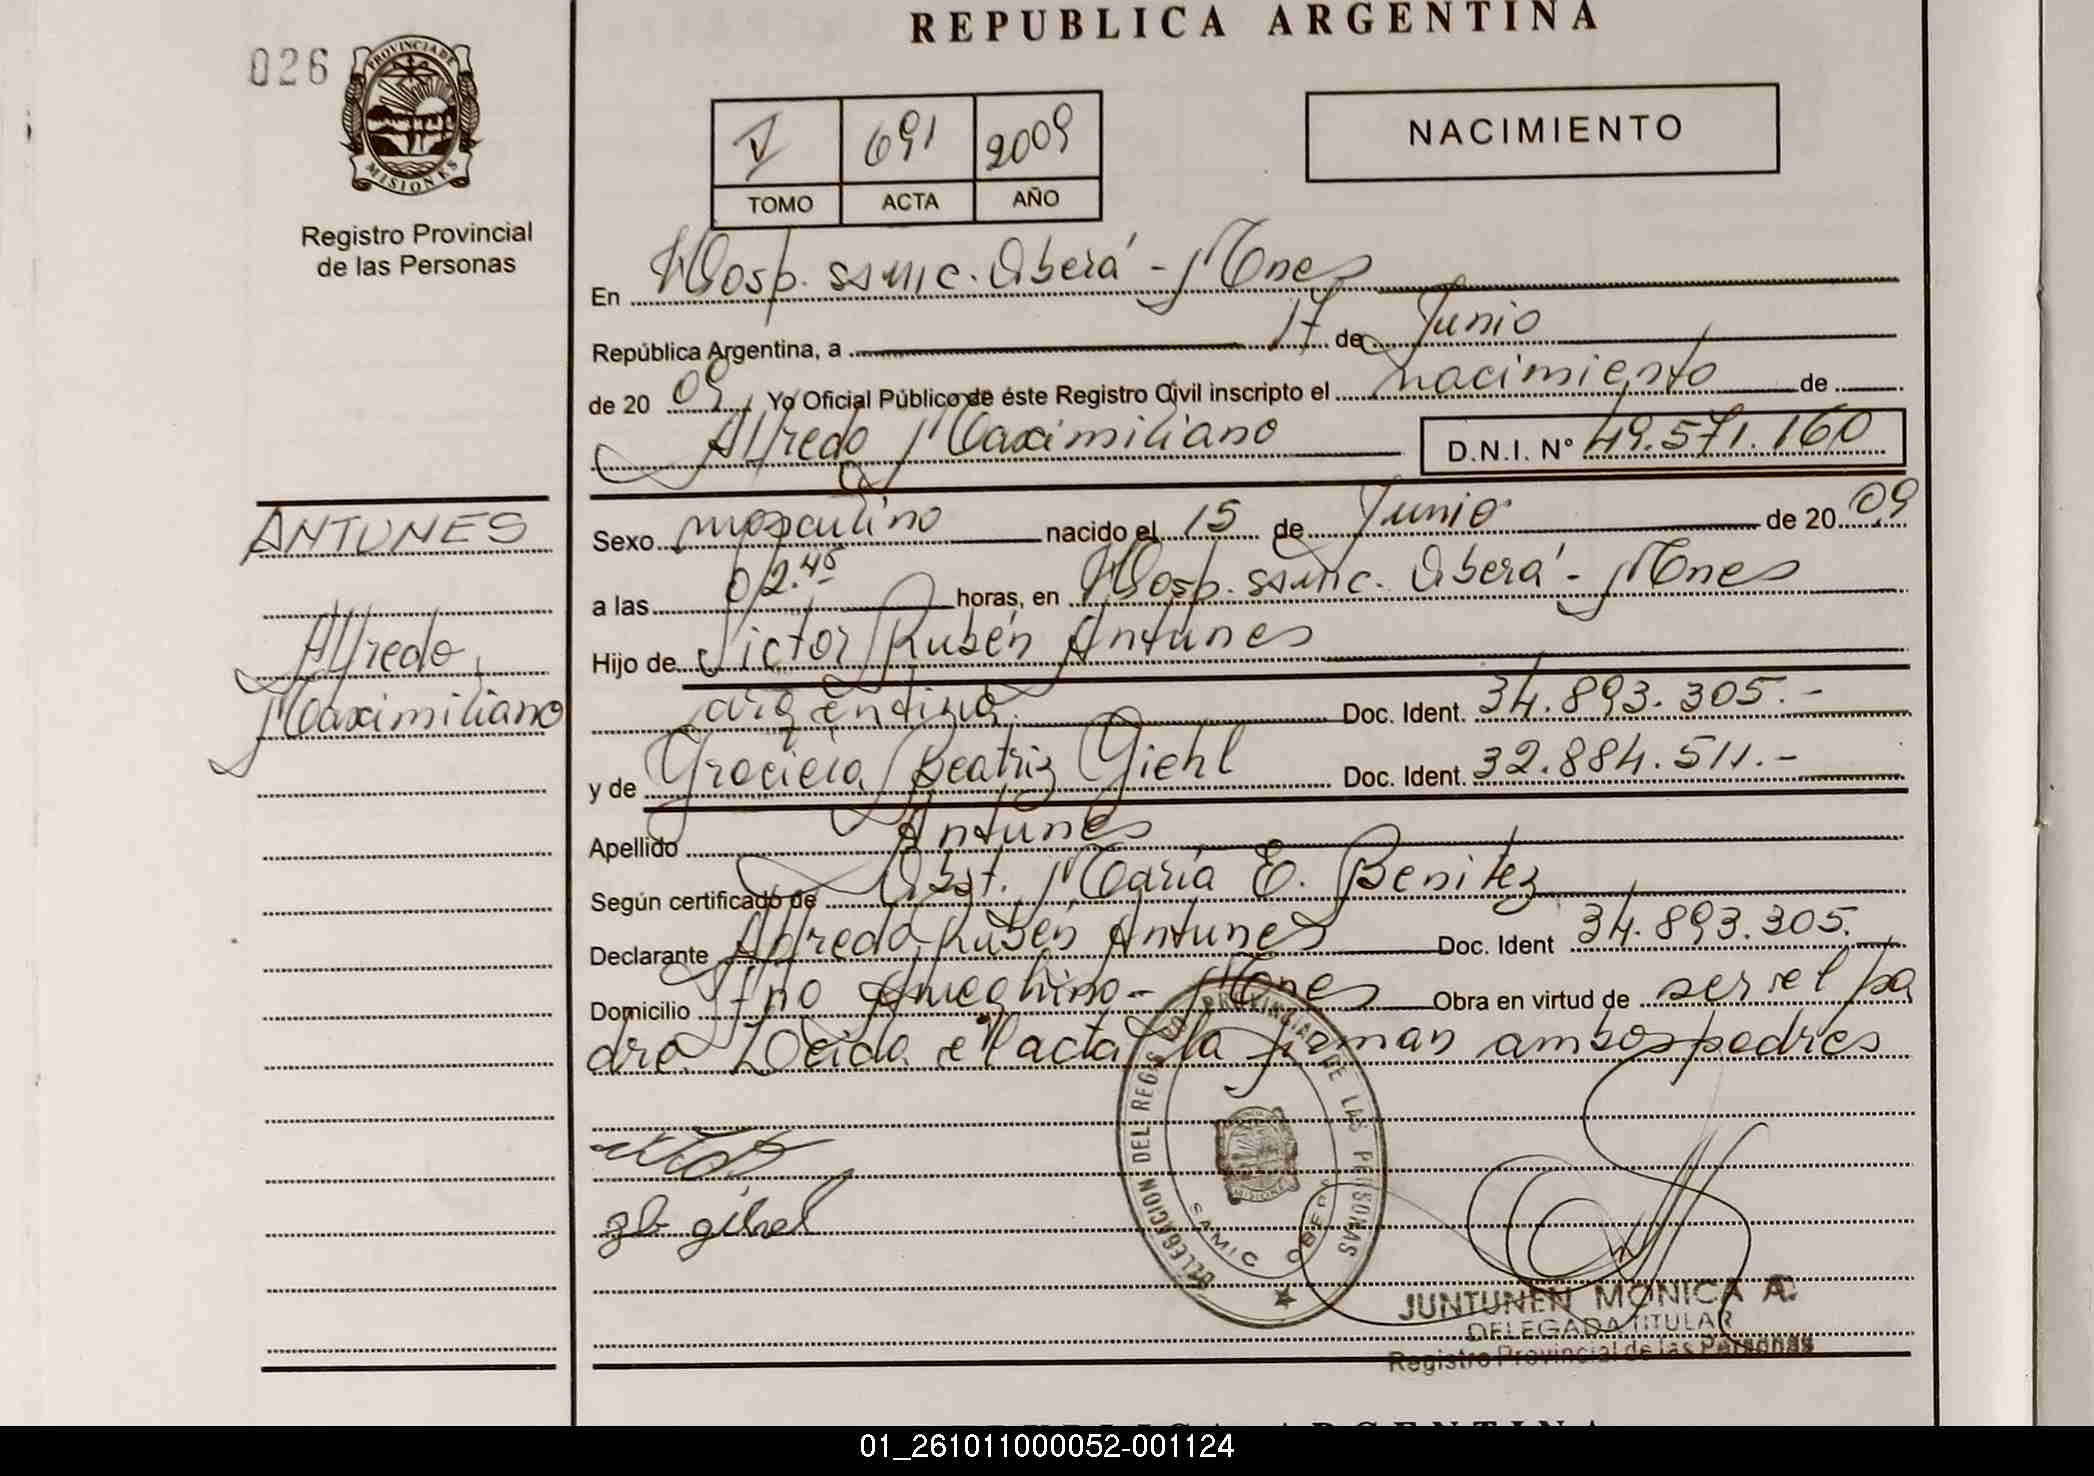 REPUBLICA ARGENTINA
026
PROVINCIA DE
MISIONES
Registro Provincial
de las Personas
V 691 2009
TOMO ACTA AÑO
NACIMIENTO
En Hosp. ssmic. Oberá - Mnes
República Argentina, a 17 de Junio
de 20 09 Yo Oficial Público de éste Registro Civil inscripto el nacimiento de
Alfredo Maximiliano D.N.I. Nº 49.571.160
ANTUNES
Alfredo
Maximiliano
Sexo masculino nacido el 15 de Junio de 20 09
a las 02.45 horas, en Hosp. ssmic. Oberá - Mnes
Hijo de Victor Rubén Antunes
argentino. Doc. Ident. 34.893.305.-
y de Graciela Beatriz Giehl Doc. Ident. 32.884.511.-
Apellido Antunes
Según certificado de Obst. María E. Benitez
Declarante Alfredo Rubén Antunes Doc. Ident 34.893.305.
Domicilio Fno Ameghino - Mnes Obra en virtud de ser el pa
dre. Leida el acta la firman ambos padres
DELEGACION DEL REGISTRO PROVINCIAL DE LAS PERSONAS
SAMIC OBERA
MISIONES
JUNTUNEN MONICA A.
DELEGADA TITULAR
Registro Provincial de las Personas
REPUBLICA ARGENTINA
01_261011000052-001124